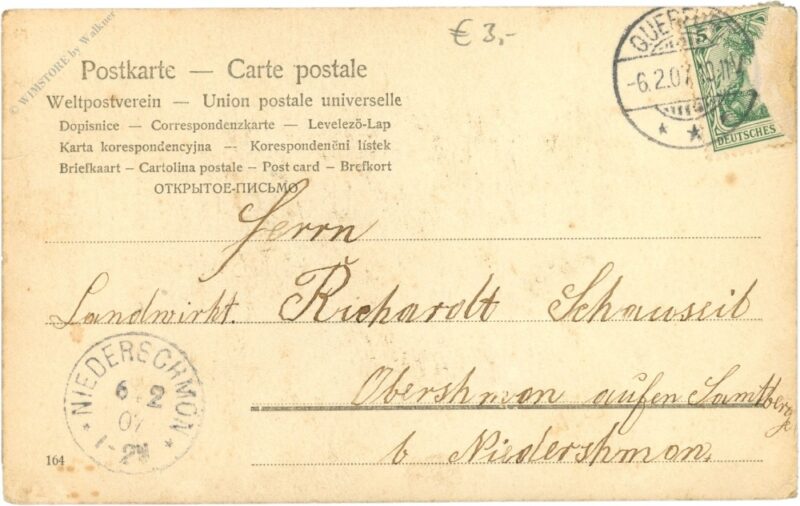 € 3,-
© WIMSTORE by Walkner
Postkarte — Carte postale
Weltpostverein — Union postale universelle
Dopisnice — Correspondenzkarte — Levelező-Lap
Karta korespondencyjna — Korespondenčni lístek
Briefkaart — Cartolina postale — Post card — Brefkort
ОТКРЫТОЕ-ПИСЬМО
-6.2.07
DEUTSCHES
Herrn
Landwirkt. Richardt Schauseil
Obershmon aufen Samtberge
b Niedershmon.
NIEDERSCHMON
6 2
07
1-2N
164